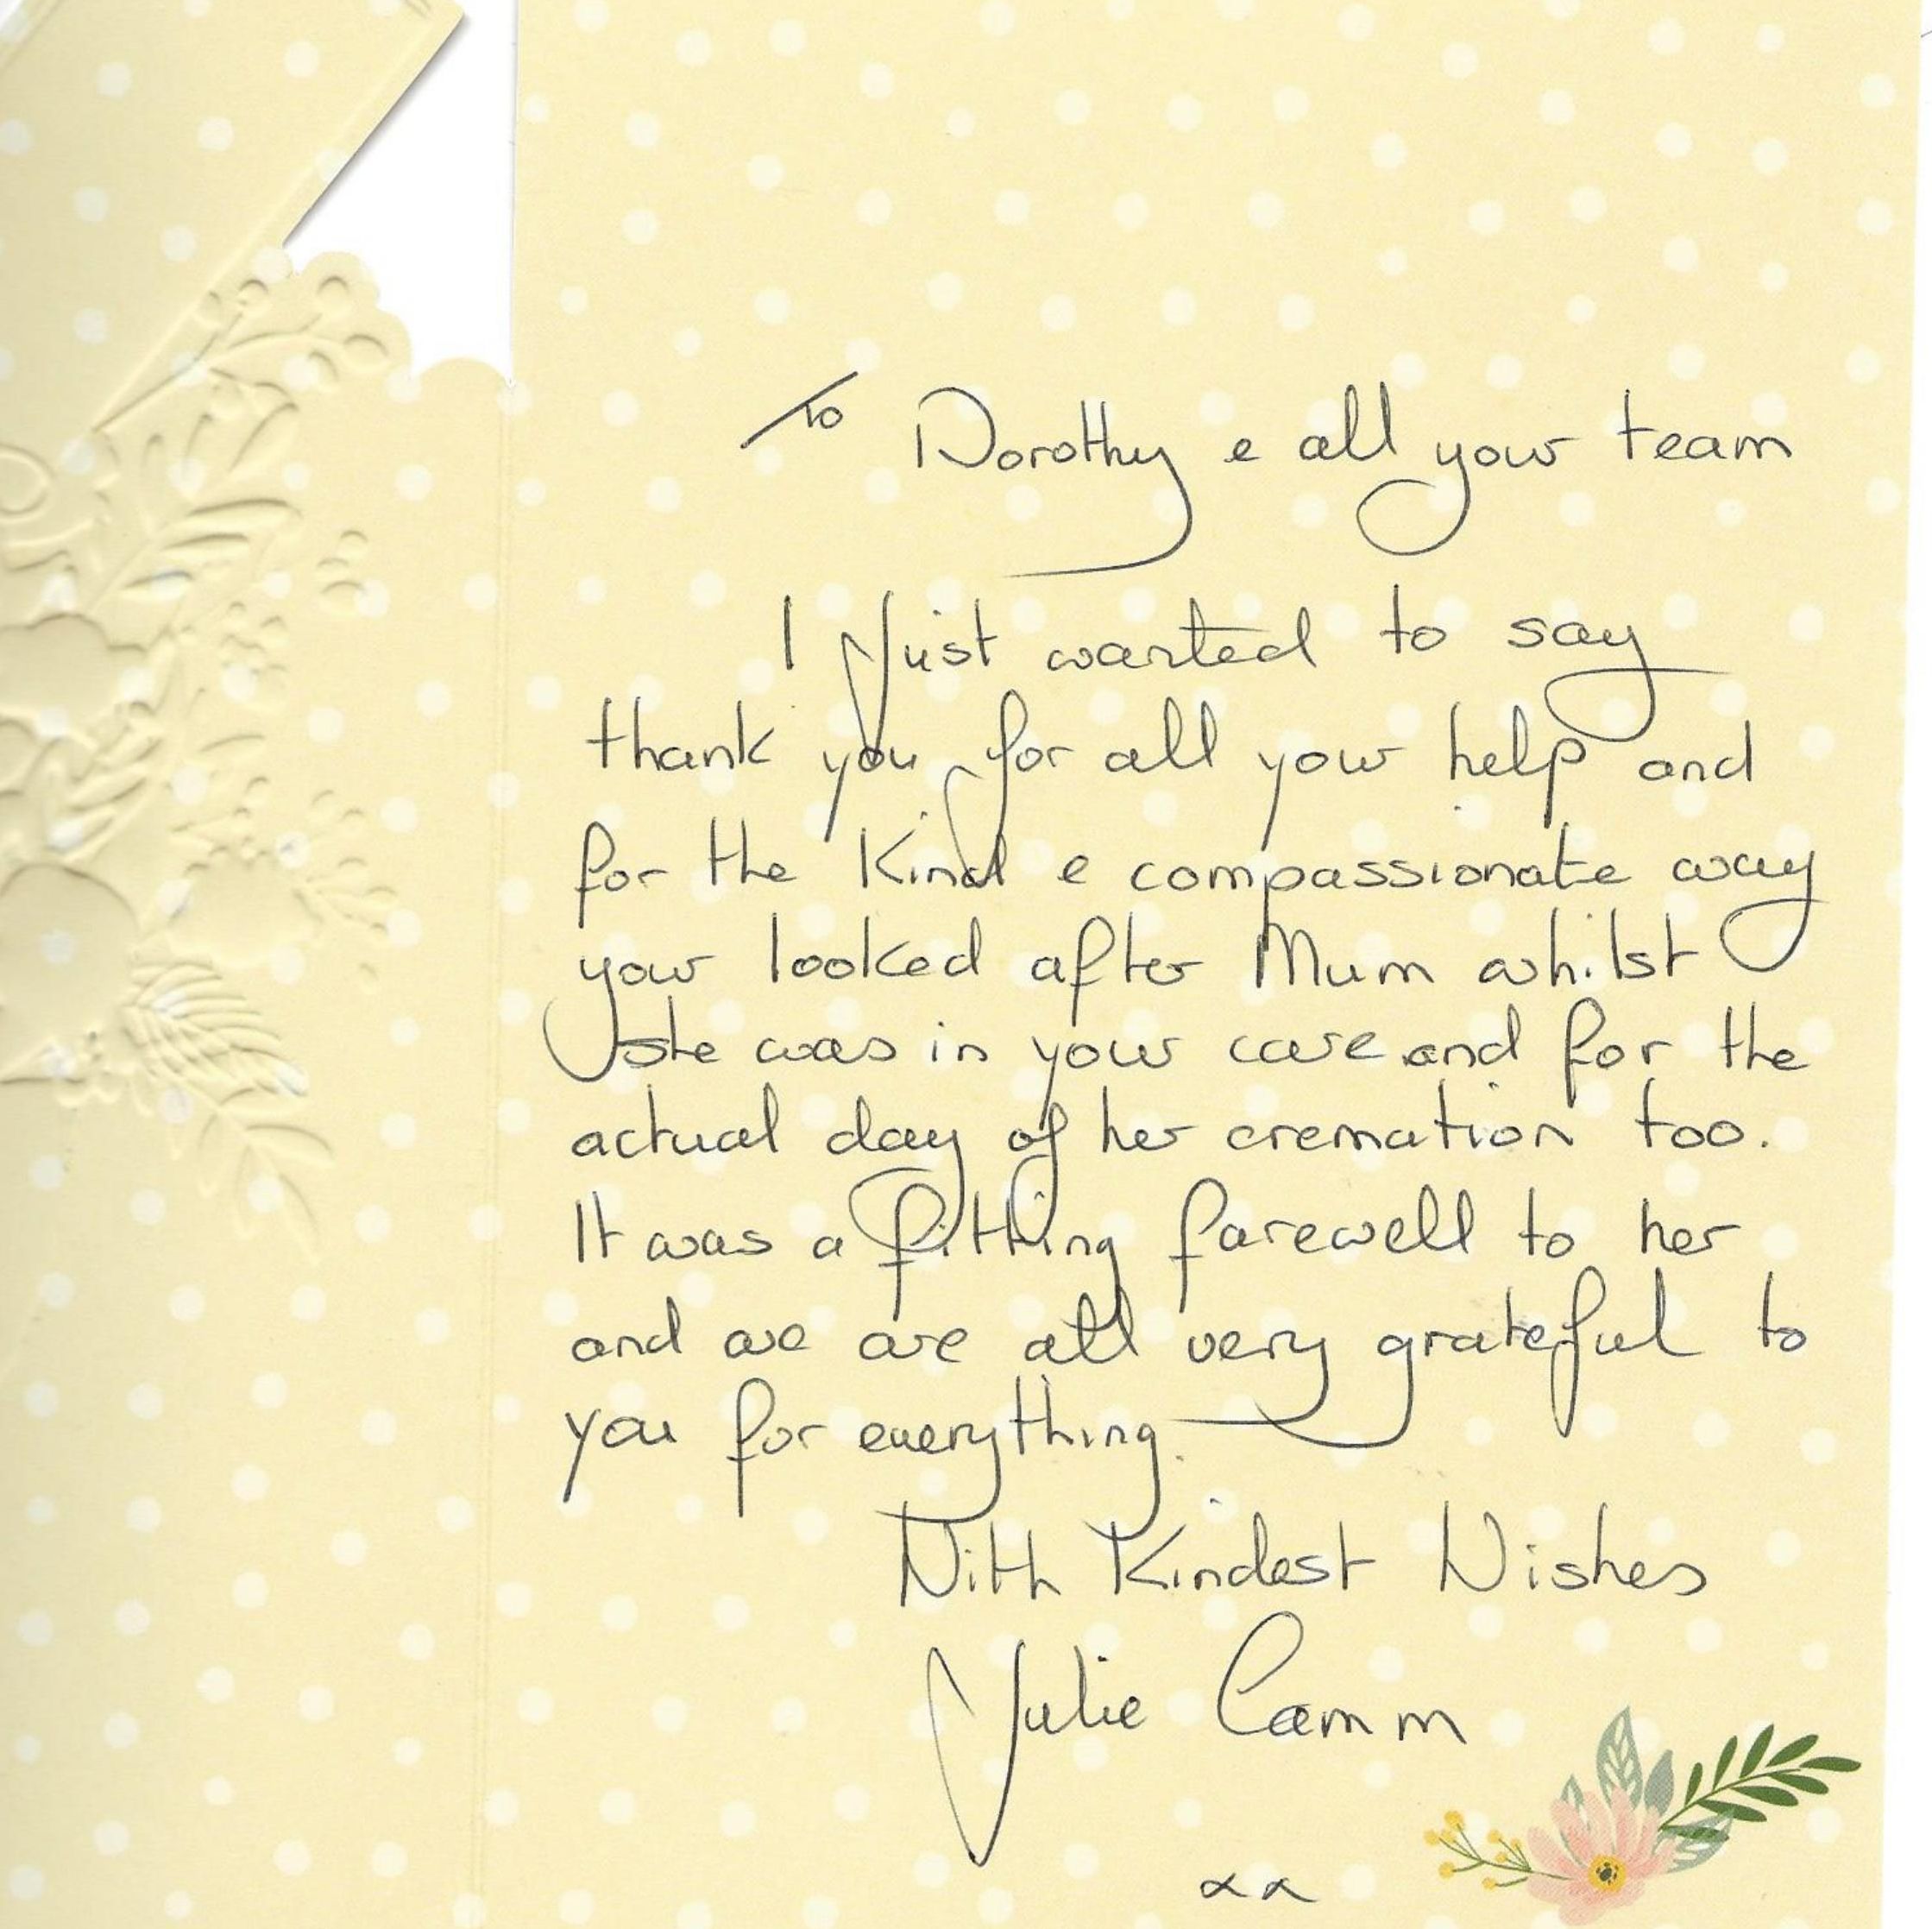 To Dorothy & all your team
I Just wanted to say
thank you for all your help and
for the Kind & compassionate way
your looked after Mum whilst
she was in your care and for the
actual day of her cremation too.
It was a fitting farewell to her
and we are all very grateful to
you for everything.
With Kindest Wishes
Julie Camm
xx